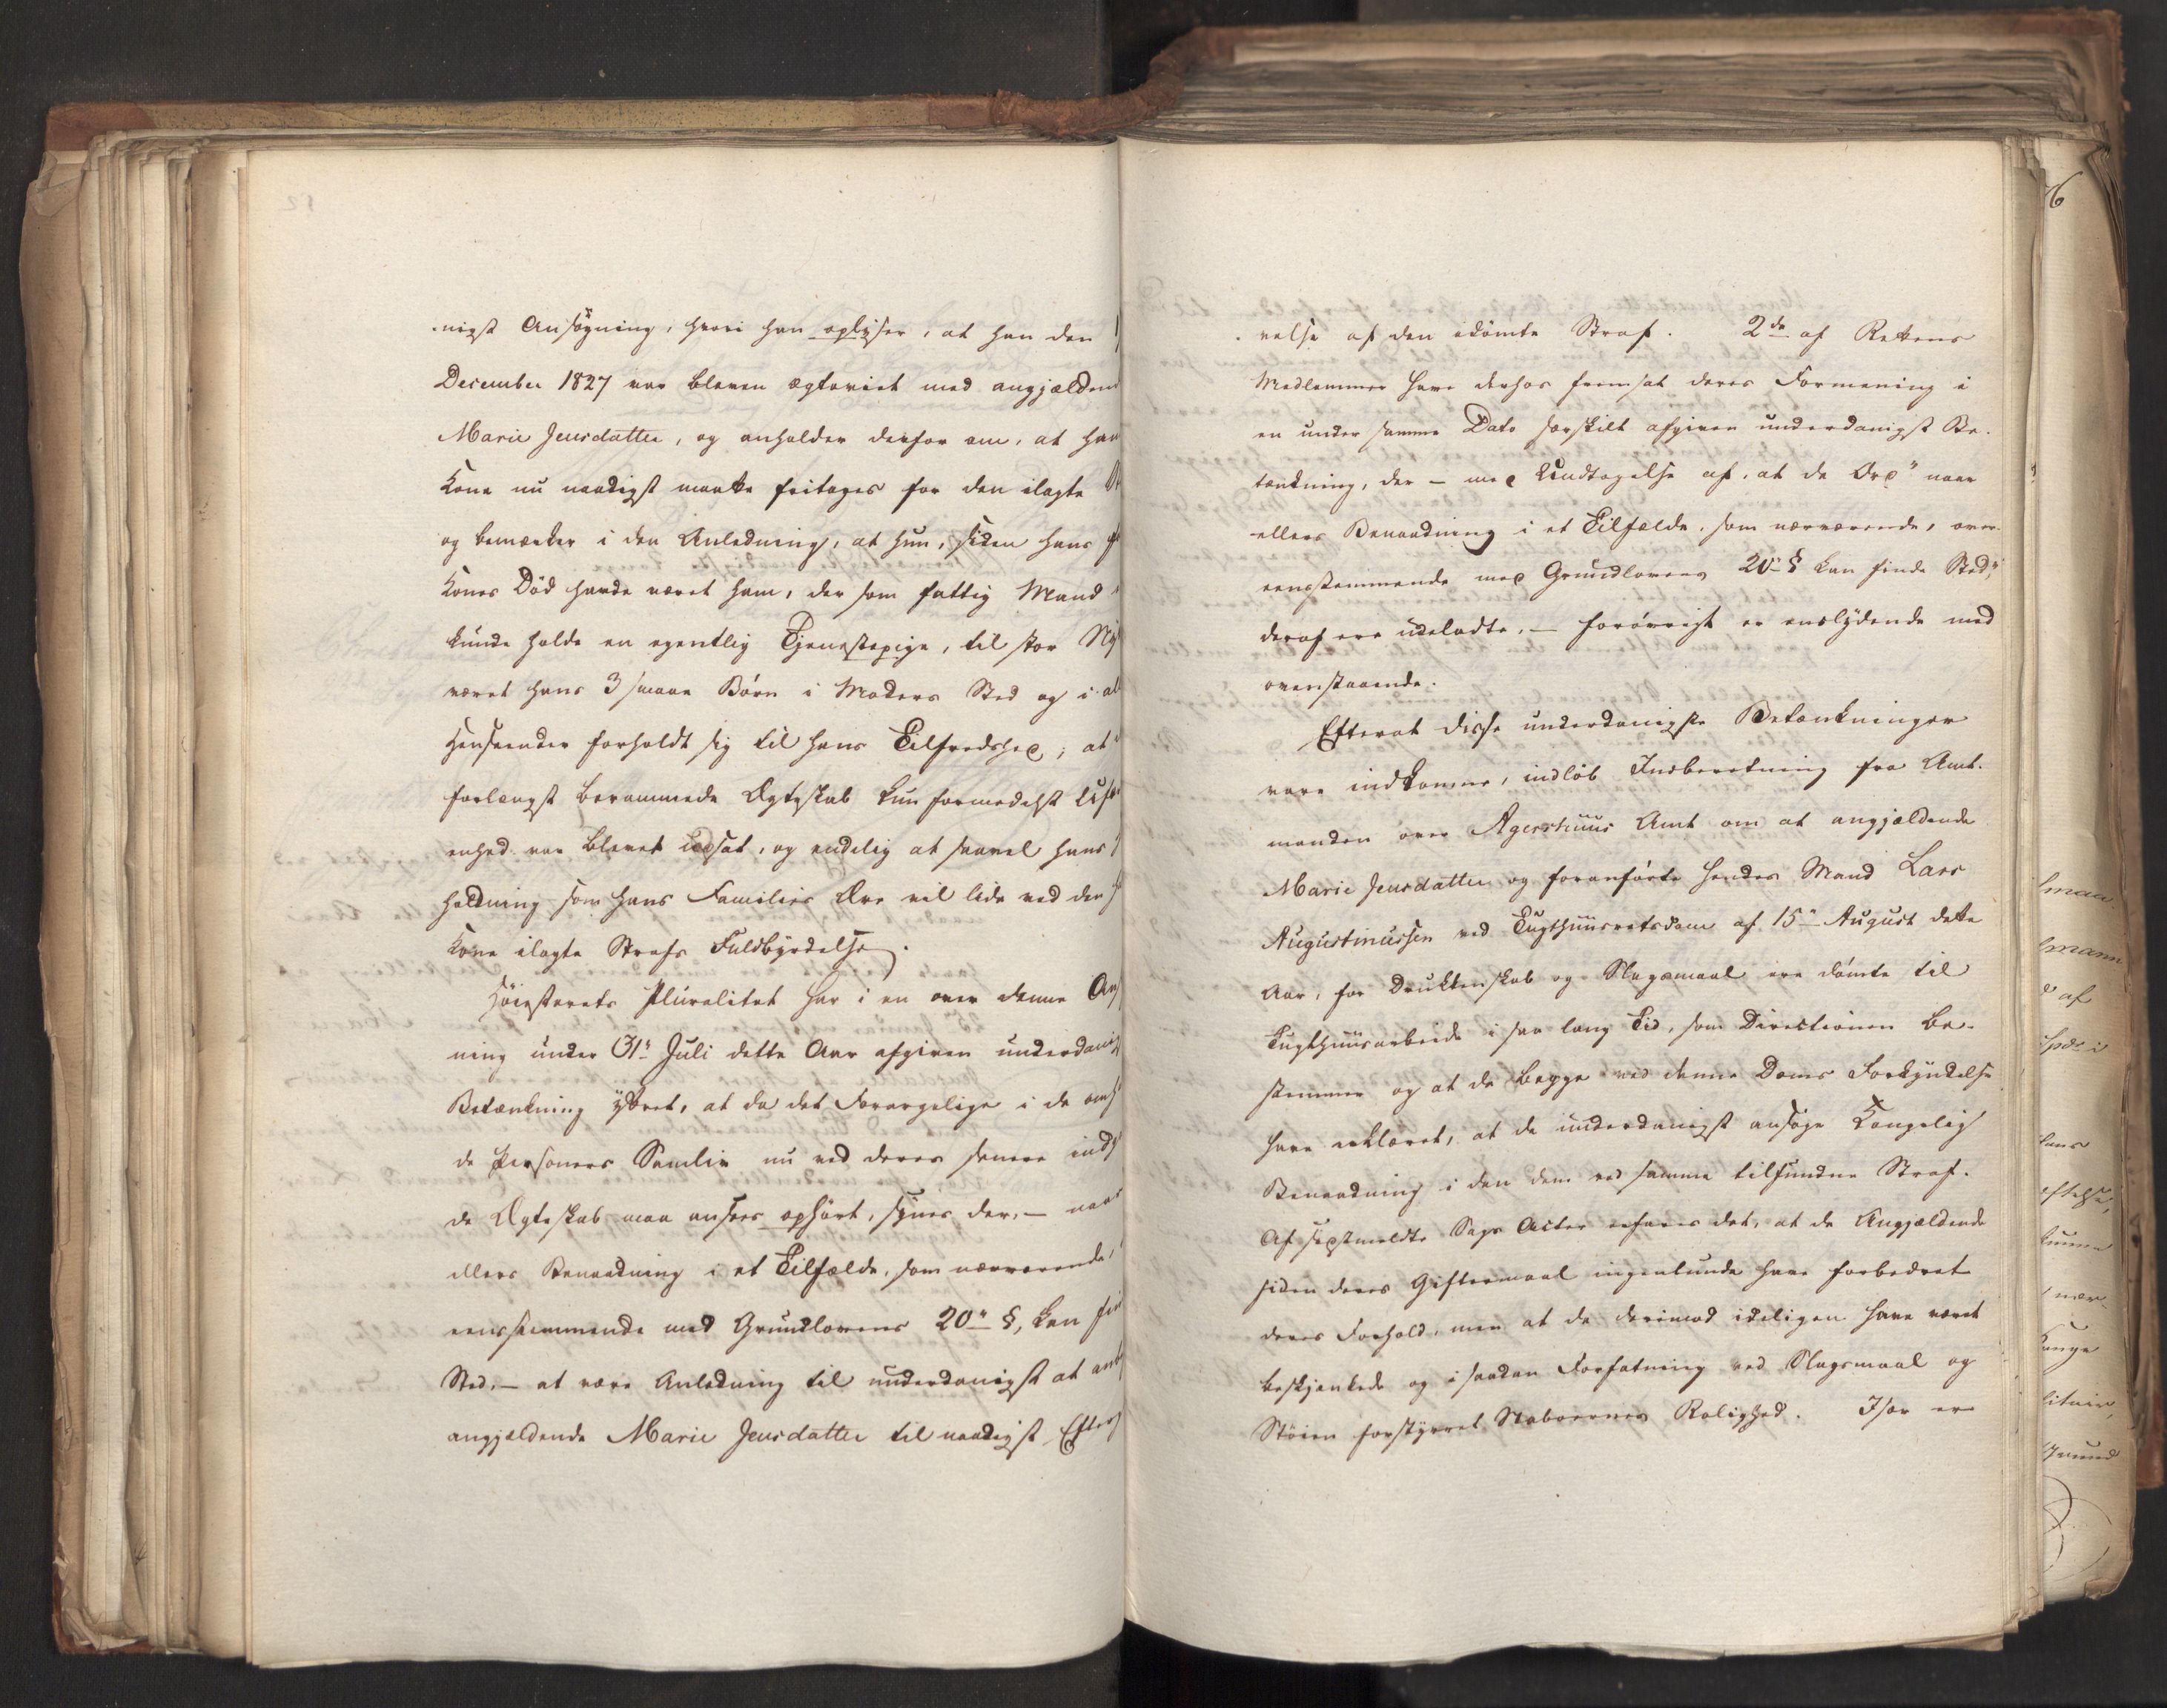 nigst Ansøgning, hvori han oplyser, at han den
December 1827 var bleven ægteviet med angjældend
Marie Jensdatter, og anholder derfor om, at han
Kone nu naadigst maatte fritages for den ilagte
og bemærker i den Anledning, at hun, siden hans
Kones Død havde været ham, der som fattig Mand
kunde holde en egentlig Tjenestepige, til stor Ny
været hans 3 smaae Børn i Moders Sted og i al
Henseender forholdt sig til hans Tilfredshed; at
forlængst berammede Ægteskab kun formedelst
enhed var blevet udsat, og endelig at saavel hans
holdning som hans Families Ære vil lide ved den
Kone ilagte Strafs Fuldbyrdelse.
Høiesterets Pluralitet har i en over denne Ans
ning under 31te Juli dette Aar afgiven underdanig
Betænkning yttret, at da det Forargelige i de omh
de Personers Samliv nu ved deres senere indg
de Ægteskab maa ansees ophørt, synes der, — naar
ellers Benaadning i et Tilfælde, som nærværende,
eensstemmende med Grundlovens 20de §, kan fin
Sted, — at være Anledning til underdanigst at anb
angjældende Marie Jensdatter til naadigst Efterg
velse af den idømte Straf. 2de af Rettens
Medlemmer have derhos fremsat deres Formening i
en under samme Dato særskilt afgiven underdanigst Be-
tænkning, der — med Undtagelse af, at de Ord "naar
ellers Benaadning i et Tilfælde, som nærværende, over-
eensstemmende med Grundlovens 20de § kan finde Sted",
deraf ere udeladte, — forøvrigt er eenslydende med
ovenstaaende.
Efterat disse underdanigste Betænkninger
vare indkomne, indløb Indberetning fra Amt-
manden over Agershuus Amt om at angjældende
Marie Jensdatter og foranførte hendes Mand Lars
Augustinussen ved Tugthuusretsdom af 15de August dette
Aar, for Drukkenskab og Slagsmaal ere dømte til
Tugthuusarbeide i saa lang Tid, som Directionen be-
stemmer og at de begge ved denne Doms Forkyndelse
have erklæret, at de underdanigst ansøge Kongelig
Benaadning i den dem ved samme tilfundne Straf.
Af sidstmeldte Sags Acter erfares det, at de Angjældende
siden deres Giftermaal ingenlunde have forbedret
deres Forhold, men at de derimod ideligen have været
beskjænkede og i saadan Forfatning ved Slagsmaal og
Støien forstyrret Naboernes Rolighed. Især er